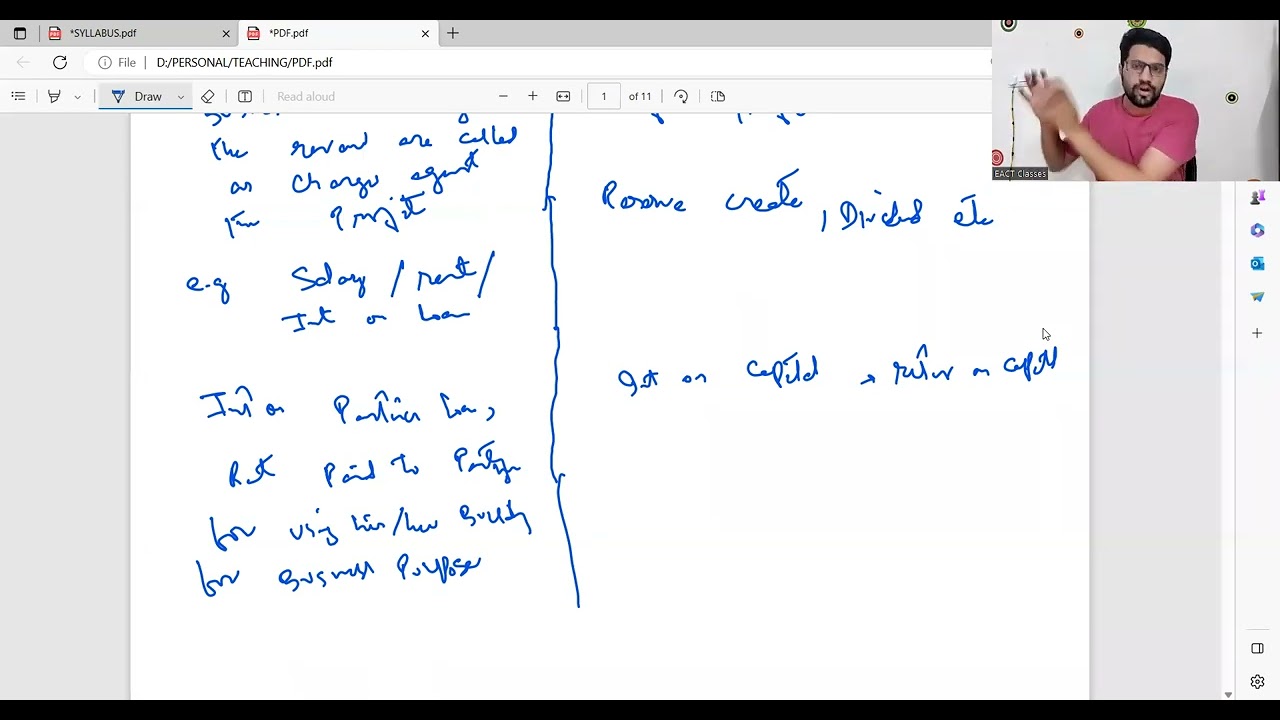 *SYLLABUS.pdf
*PDF.pdf
File
D:/PERSONAL/TEACHING/PDF.pdf
Draw
Read aloud
1 of 11
EACT Classes
the are called
as charge against
the Profit
e.g Salary / rent /
Int on loan
Int on Partner loan,
Rent Paid to Partner
for using his/her Building
for Business Purpose
Reserve create, Dividend etc
Int on capital → return on capital